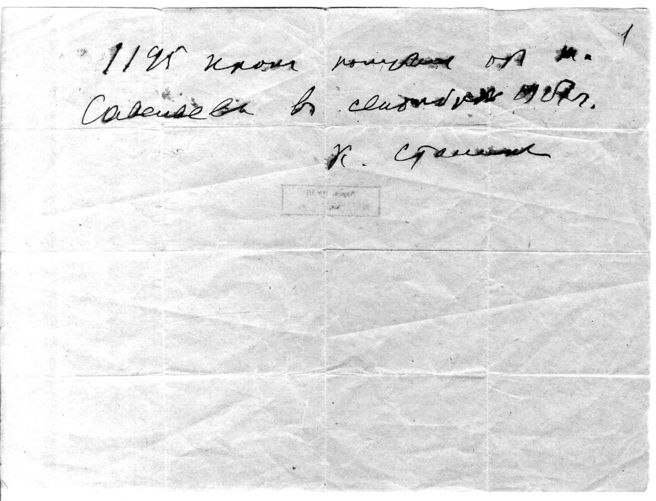 1
1195 крон получил от т.
Савельева в сентябре
К. Сталин